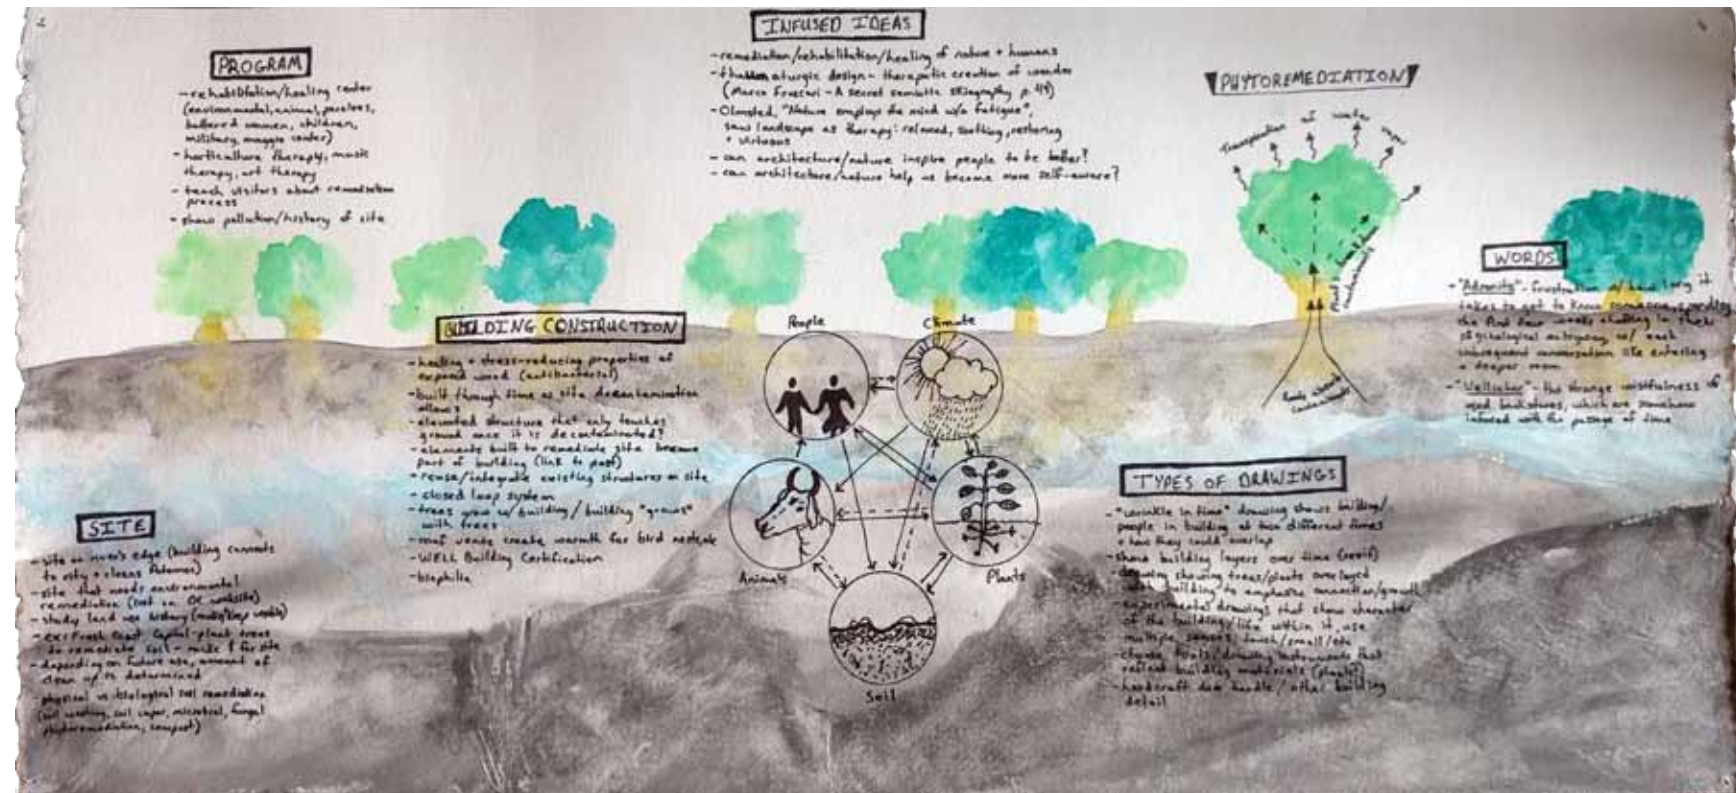 PROGRAM
- rehabilitation/healing center
(environmental, animal, paralees,
battered women, children,
military, maggie center)
- horticulture therapy, music
therapy, art therapy
- teach visitors about remediation
process
- show pollution/history of site
INFUSED IDEAS
- remediation/rehabilitation/healing of nature + humans
- thaumaturgic design - therapeutic creation of wonder
(Marco Frascari - A secret semiotic skiagraphy p.
- Olmsted, "Nature employs the mind w/o fatigue",
saw landscape as therapy: relaxed, soothing, restoring
+ virtuous
- can architecture/nature inspire people to be better?
- can architecture/nature help us become more self-aware?
PHYTOREMEDIATION
Transpiration of water vapor
Plant
contaminants
Roots absorb
contaminants
WORDS
- "Adronitis" - frustration w/ how long it
takes to get to know someone, spending
the first few weeks chatting in their
psychological entryway, w/ each
subsequent conversation like entering
a deeper room
- "Vellichor" - the strange wistfulness of
used bookstores, which are somehow
infused with the passage of time
BUILDING CONSTRUCTION
- healing + stress-reducing properties of
exposed wood (antibacterial)
- built through time as site decontamination
allows
- elevated structure that only touches
ground once it is decontaminated?
- elements built to remediate site become
part of building (link to past)
- reuse/integrate existing structures on site
- closed loop system
- trees grow w/ building / building "grows"
with trees
- roof vents create warmth for bird nests
- WELL Building Certification
- biophilia
People
Climate
Animals
Plants
Soil
SITE
- site on river's edge (building connects
to city + cleans
- site that needs environmental
remediation (list on DE website)
- study land use history
- ex: Fresh Coast Capital - plant trees
to remediate soil - make $ for site
- depending on future use, amount of
clean up is determined
- physical vs biological soil remediation
(soil washing, soil vapor, microbial, fungal
phytoremediation, compost)
TYPES OF DRAWINGS
- "wrinkle in time" drawing shows building/
people in building at two different times
+ how they could overlap
- show building layers over time (revit)
- drawing showing trees/plants overlayed
with building to emphasize connection/growth
- experimental drawings that show character
of the building/life within it, use
multiple senses, touch/smell/etc
- choose tools/drawing instruments that
reflect building materials (plants?)
- handcraft door handle / other building
detail